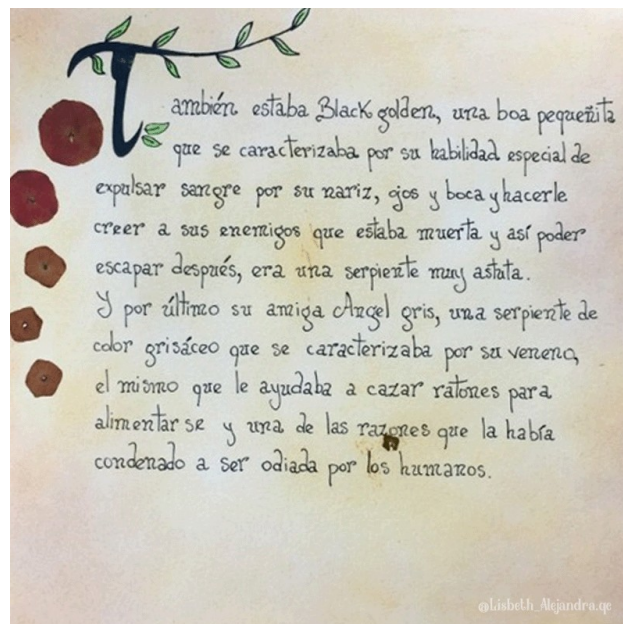 También estaba Black golden, una boa pequeñita
que se caracterizaba por su habilidad especial de
expulsar sangre por su nariz, ojos y boca y hacerle
creer a sus enemigos que estaba muerta y así poder
escapar después, era una serpiente muy astuta.
Y por último su amiga Angel gris, una serpiente de
color grisáceo que se caracterizaba por su veneno,
el mismo que le ayudaba a cazar ratones para
alimentarse y una de las razones que la había
condenado a ser odiada por los humanos.
@Lisbeth_Alejandra.qe